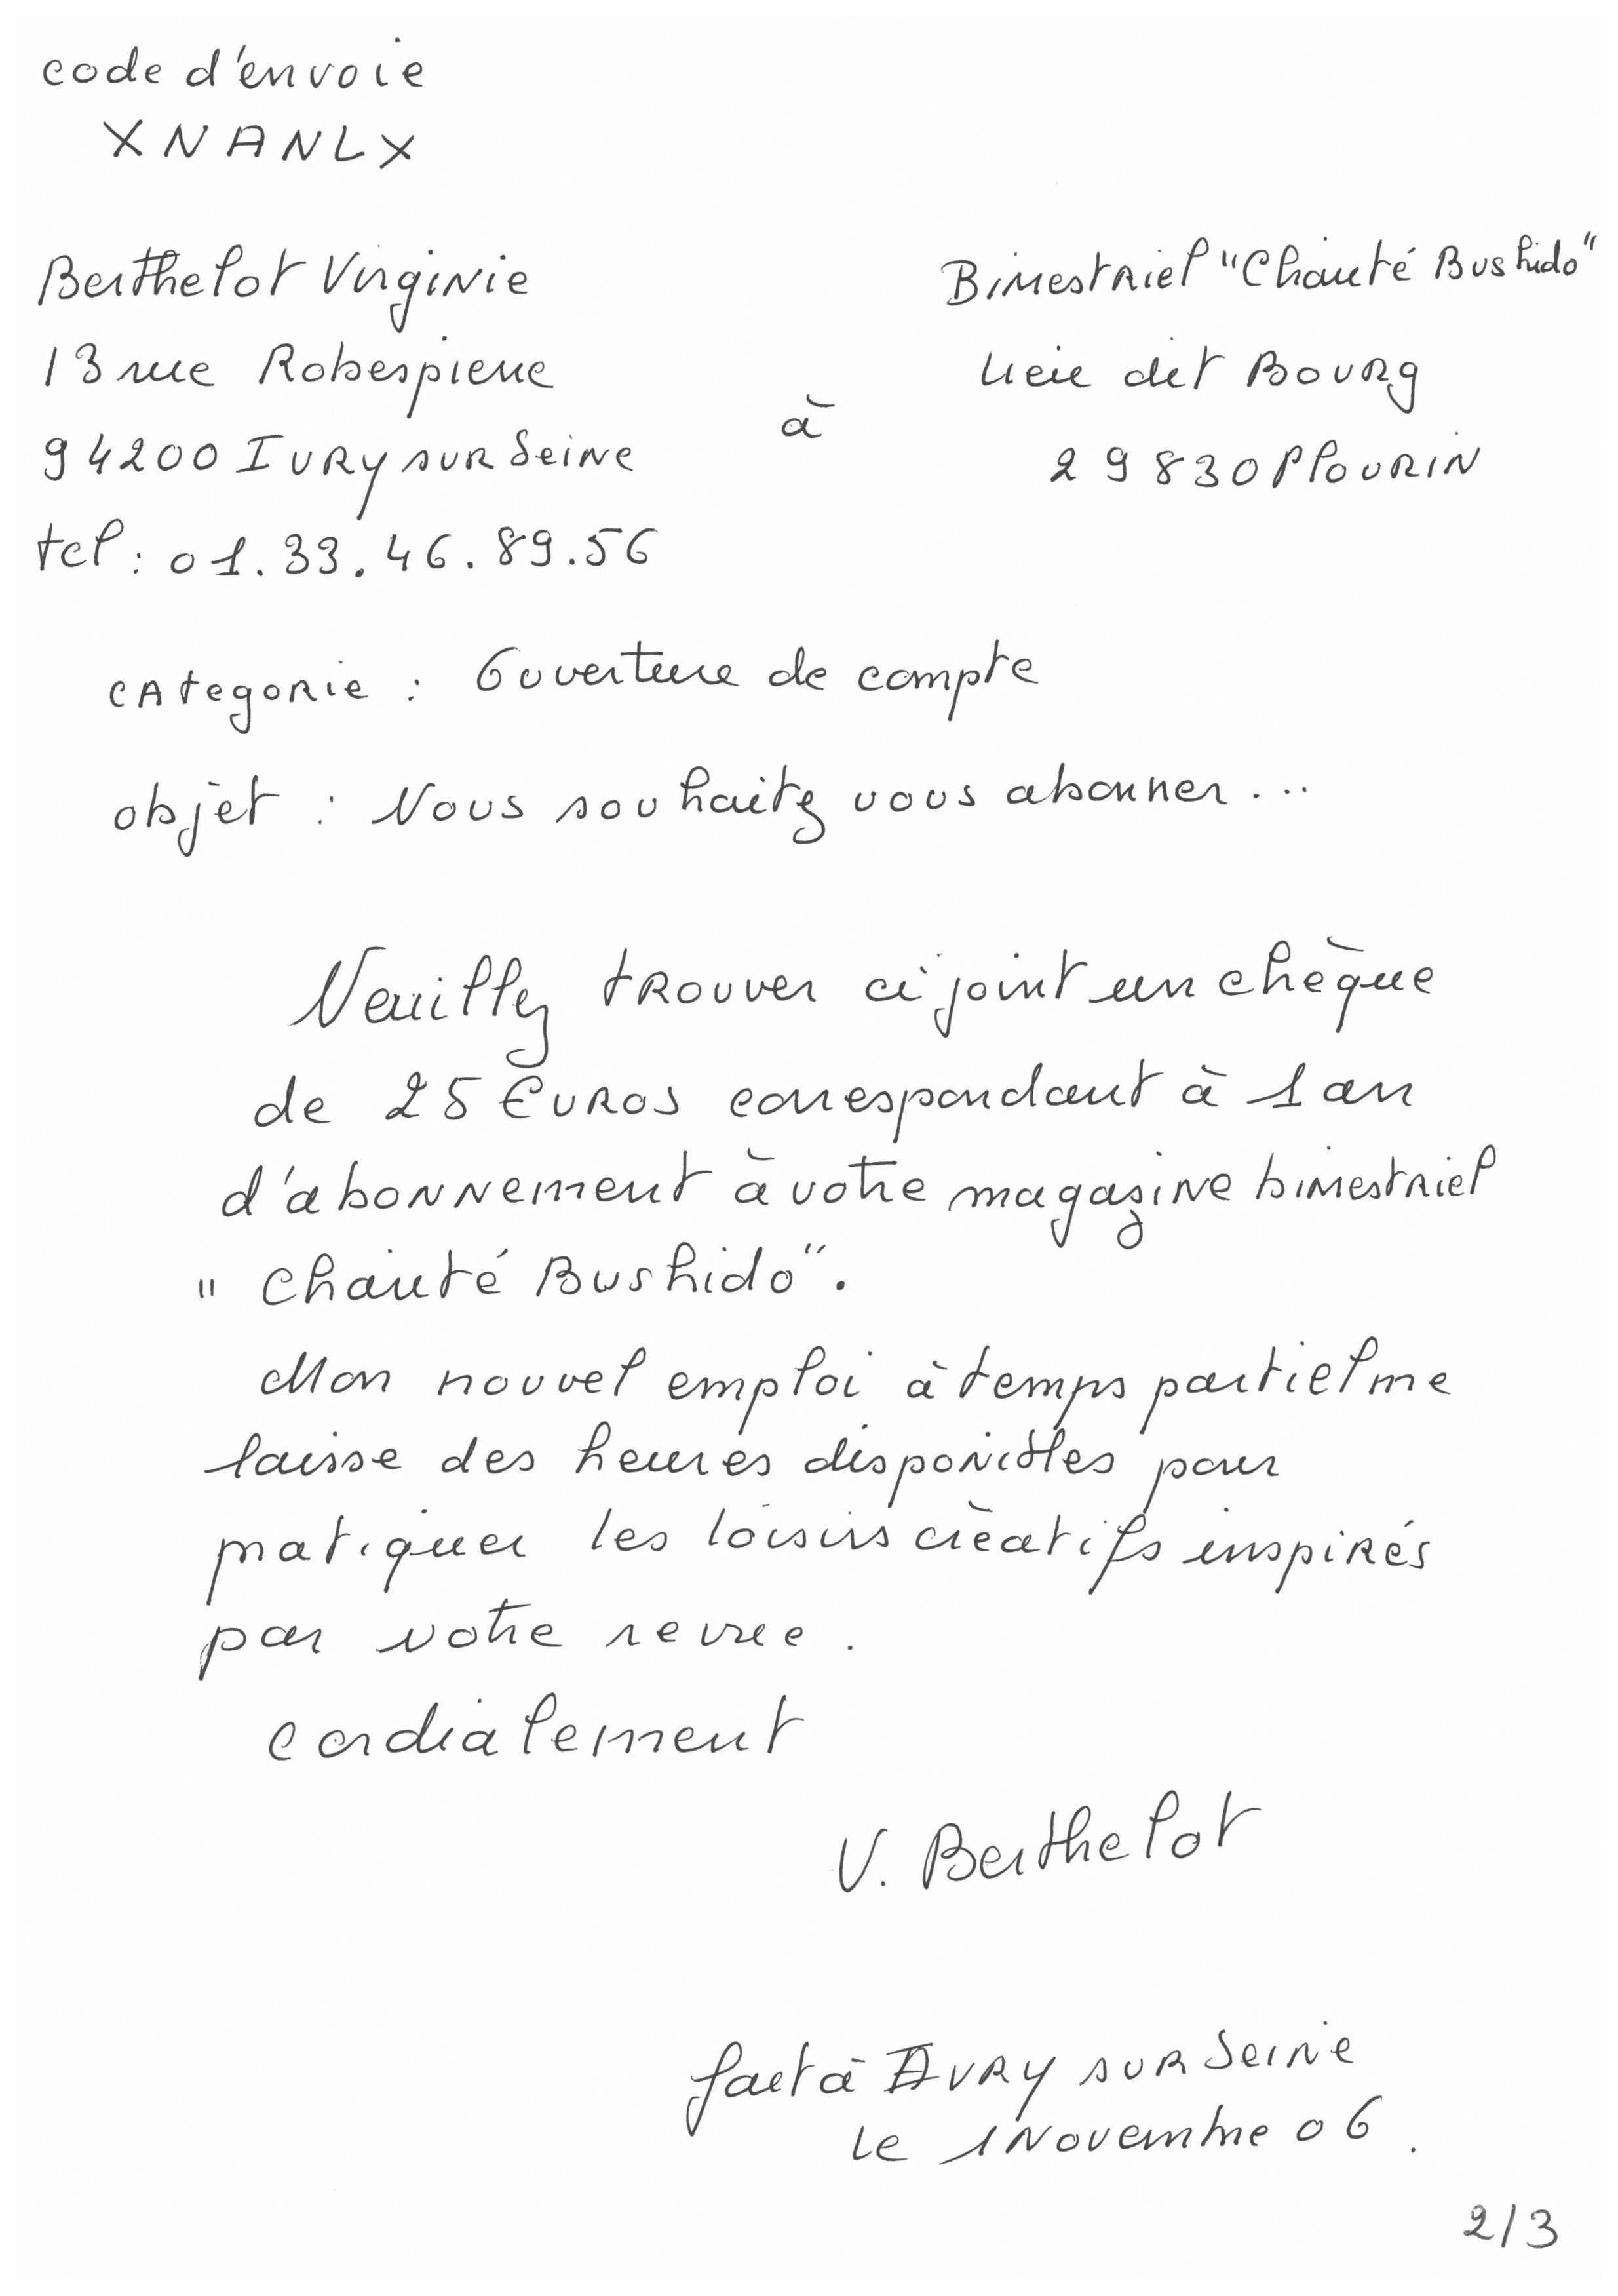 code d'envoie
XNANLX
Berthelot Virginie
13 rue Robespierre
94200 IVRY sur Seine
tel : 01.33.46.89.56
à
Bimestriel "Chanté Bushido"
lieu dit Bourg
29830 Plourin
categorie : Ouverture de compte
objet : Vous souhaitez vous abonner ...
Veuillez trouver ci joint un chèque
de 25 Euros correspondant à 1 an
d'abonnement à votre magazine bimestriel
"Chanté Bushido".
Mon nouvel emploi à temps partiel me
laisse des heures disponibles pour
pratiquer les loisirs crèatifs inspirés
par votre revue.
cordialement
V. Berthelot
fait à IVRY sur Seine
le 1 Novembre 06.
2/3